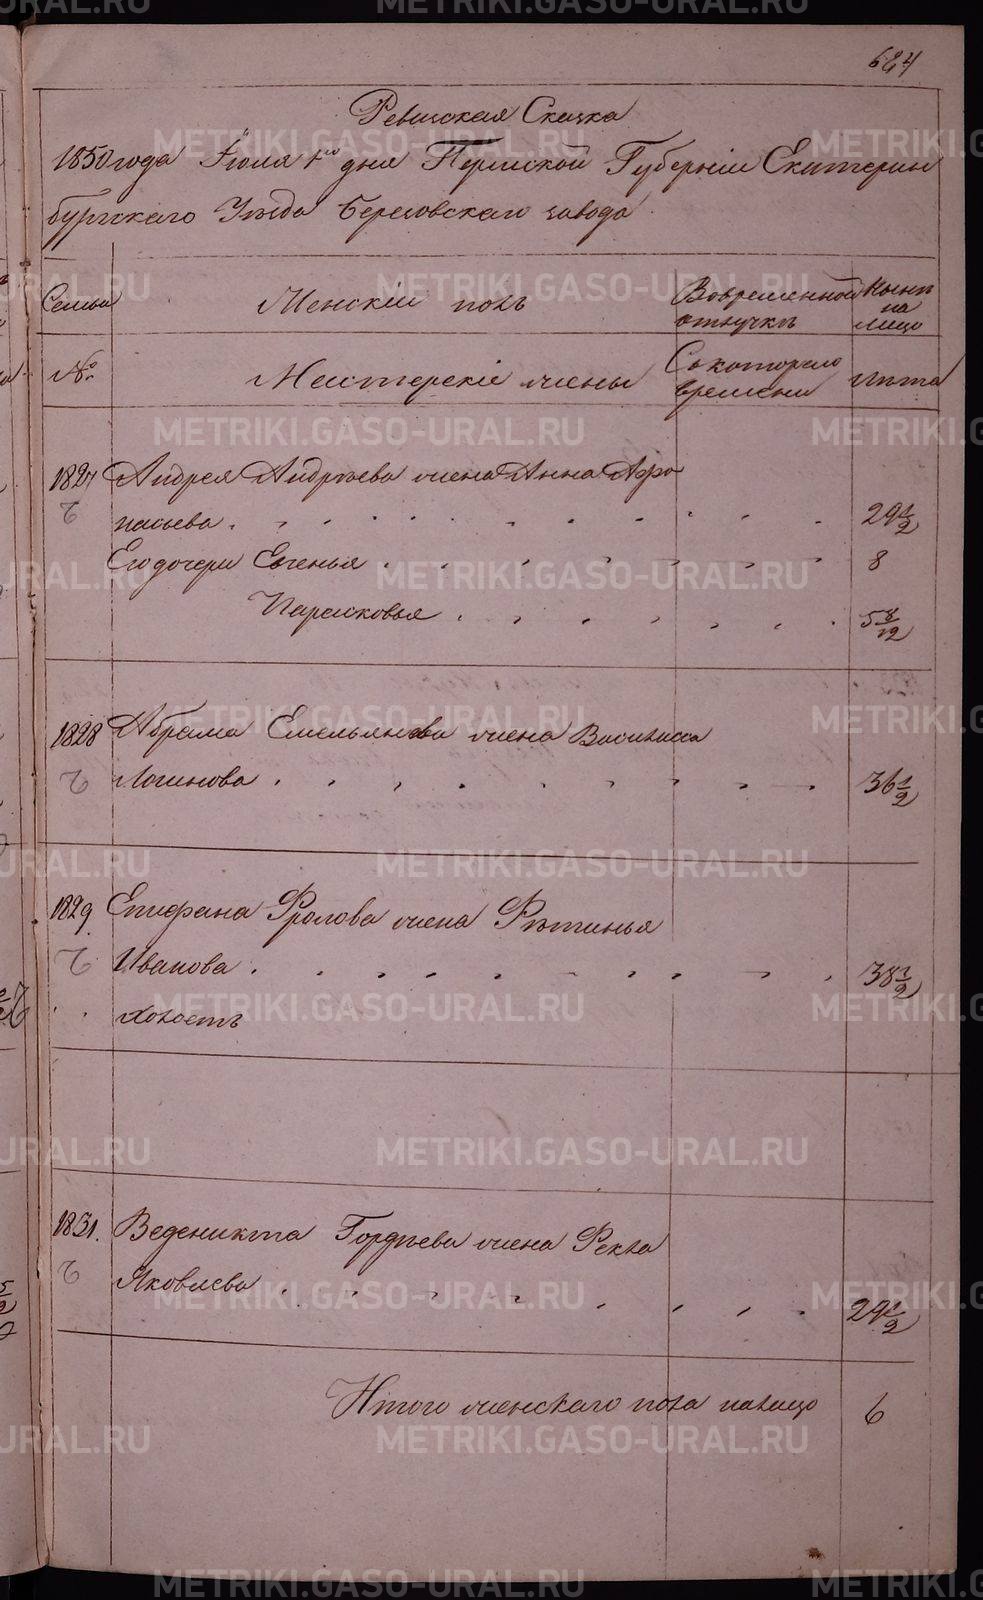 624
Ревизская Сказка
1850 года Iюля 1го дня Пермской Губернiи Екатерин
бургскаго Уезда Березовскаго завода
Семьи
Женскiй полъ
Во временной
отлучкѣ
Нынѣ
на
лицо
№
Мастерскiе жены
Съ котораго
времени
лѣта
1827 Андрея Андреева жена Анна Афо
насьева 29 1/2
Его дочери Евгенья 8
Парасковья 5 8/12
1828 Абрама Емельянова жена Василиса
Логинова 36 1/2
1829. Епифана Фролова жена Фетинья
Иванова 38 1/2
Холостъ
1831. Веденикта Гордѣева жена Фекла
Яковлева 29 1/2
Итого женскаго пола налицо 6
METRIKI.GASO-URAL.RU